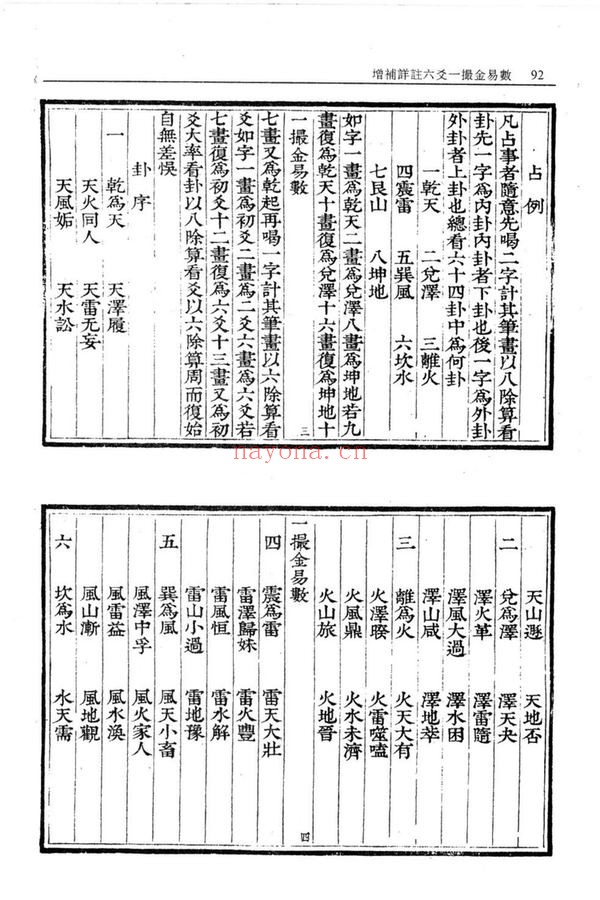 增補詳註六爻一撮金易數 92
占例
凡占事者隨意先喝二字計其筆畫以八除算看
卦先一字為內卦內卦者下卦也後一字為外卦
外卦者上卦也總看六十四卦中為何卦
一乾天 二兌澤 三離火
四震雷 五巽風 六坎水
七艮山 八坤地
如字一畫為乾天二畫為兌澤八畫為坤地若九
畫復為乾天十畫復為兌澤十六畫復為坤地十
一撮金易數 三
七畫又為乾起再喝一字計其筆畫以六除算看
爻如字一畫為初爻二畫為二爻六畫為六爻若
七畫復為初爻十二畫復為六爻十三畫又為初
爻大率看卦以八除算看爻以六除算周而復始
自無差悞
卦序
一 乾為天 天澤履
天火同人 天雷无妄
天風姤 天水訟
nayona.cn
天山遯 天地否
二 兌為澤 澤天夬
澤火革 澤雷隨
澤風大過 澤水困
澤山咸 澤地萃
三 離為火 火天大有
火澤睽 火雷噬嗑
火風鼎 火水未濟
火山旅 火地晉
一撮金易數 四
四 震為雷 雷天大壯
雷澤歸妹 雷火豐
雷風恒 雷水解
雷山小過 雷地豫
五 巽為風 風天小畜
風澤中孚 風火家人
風雷益 風水渙
風山漸 風地觀
六 坎為水 水天需